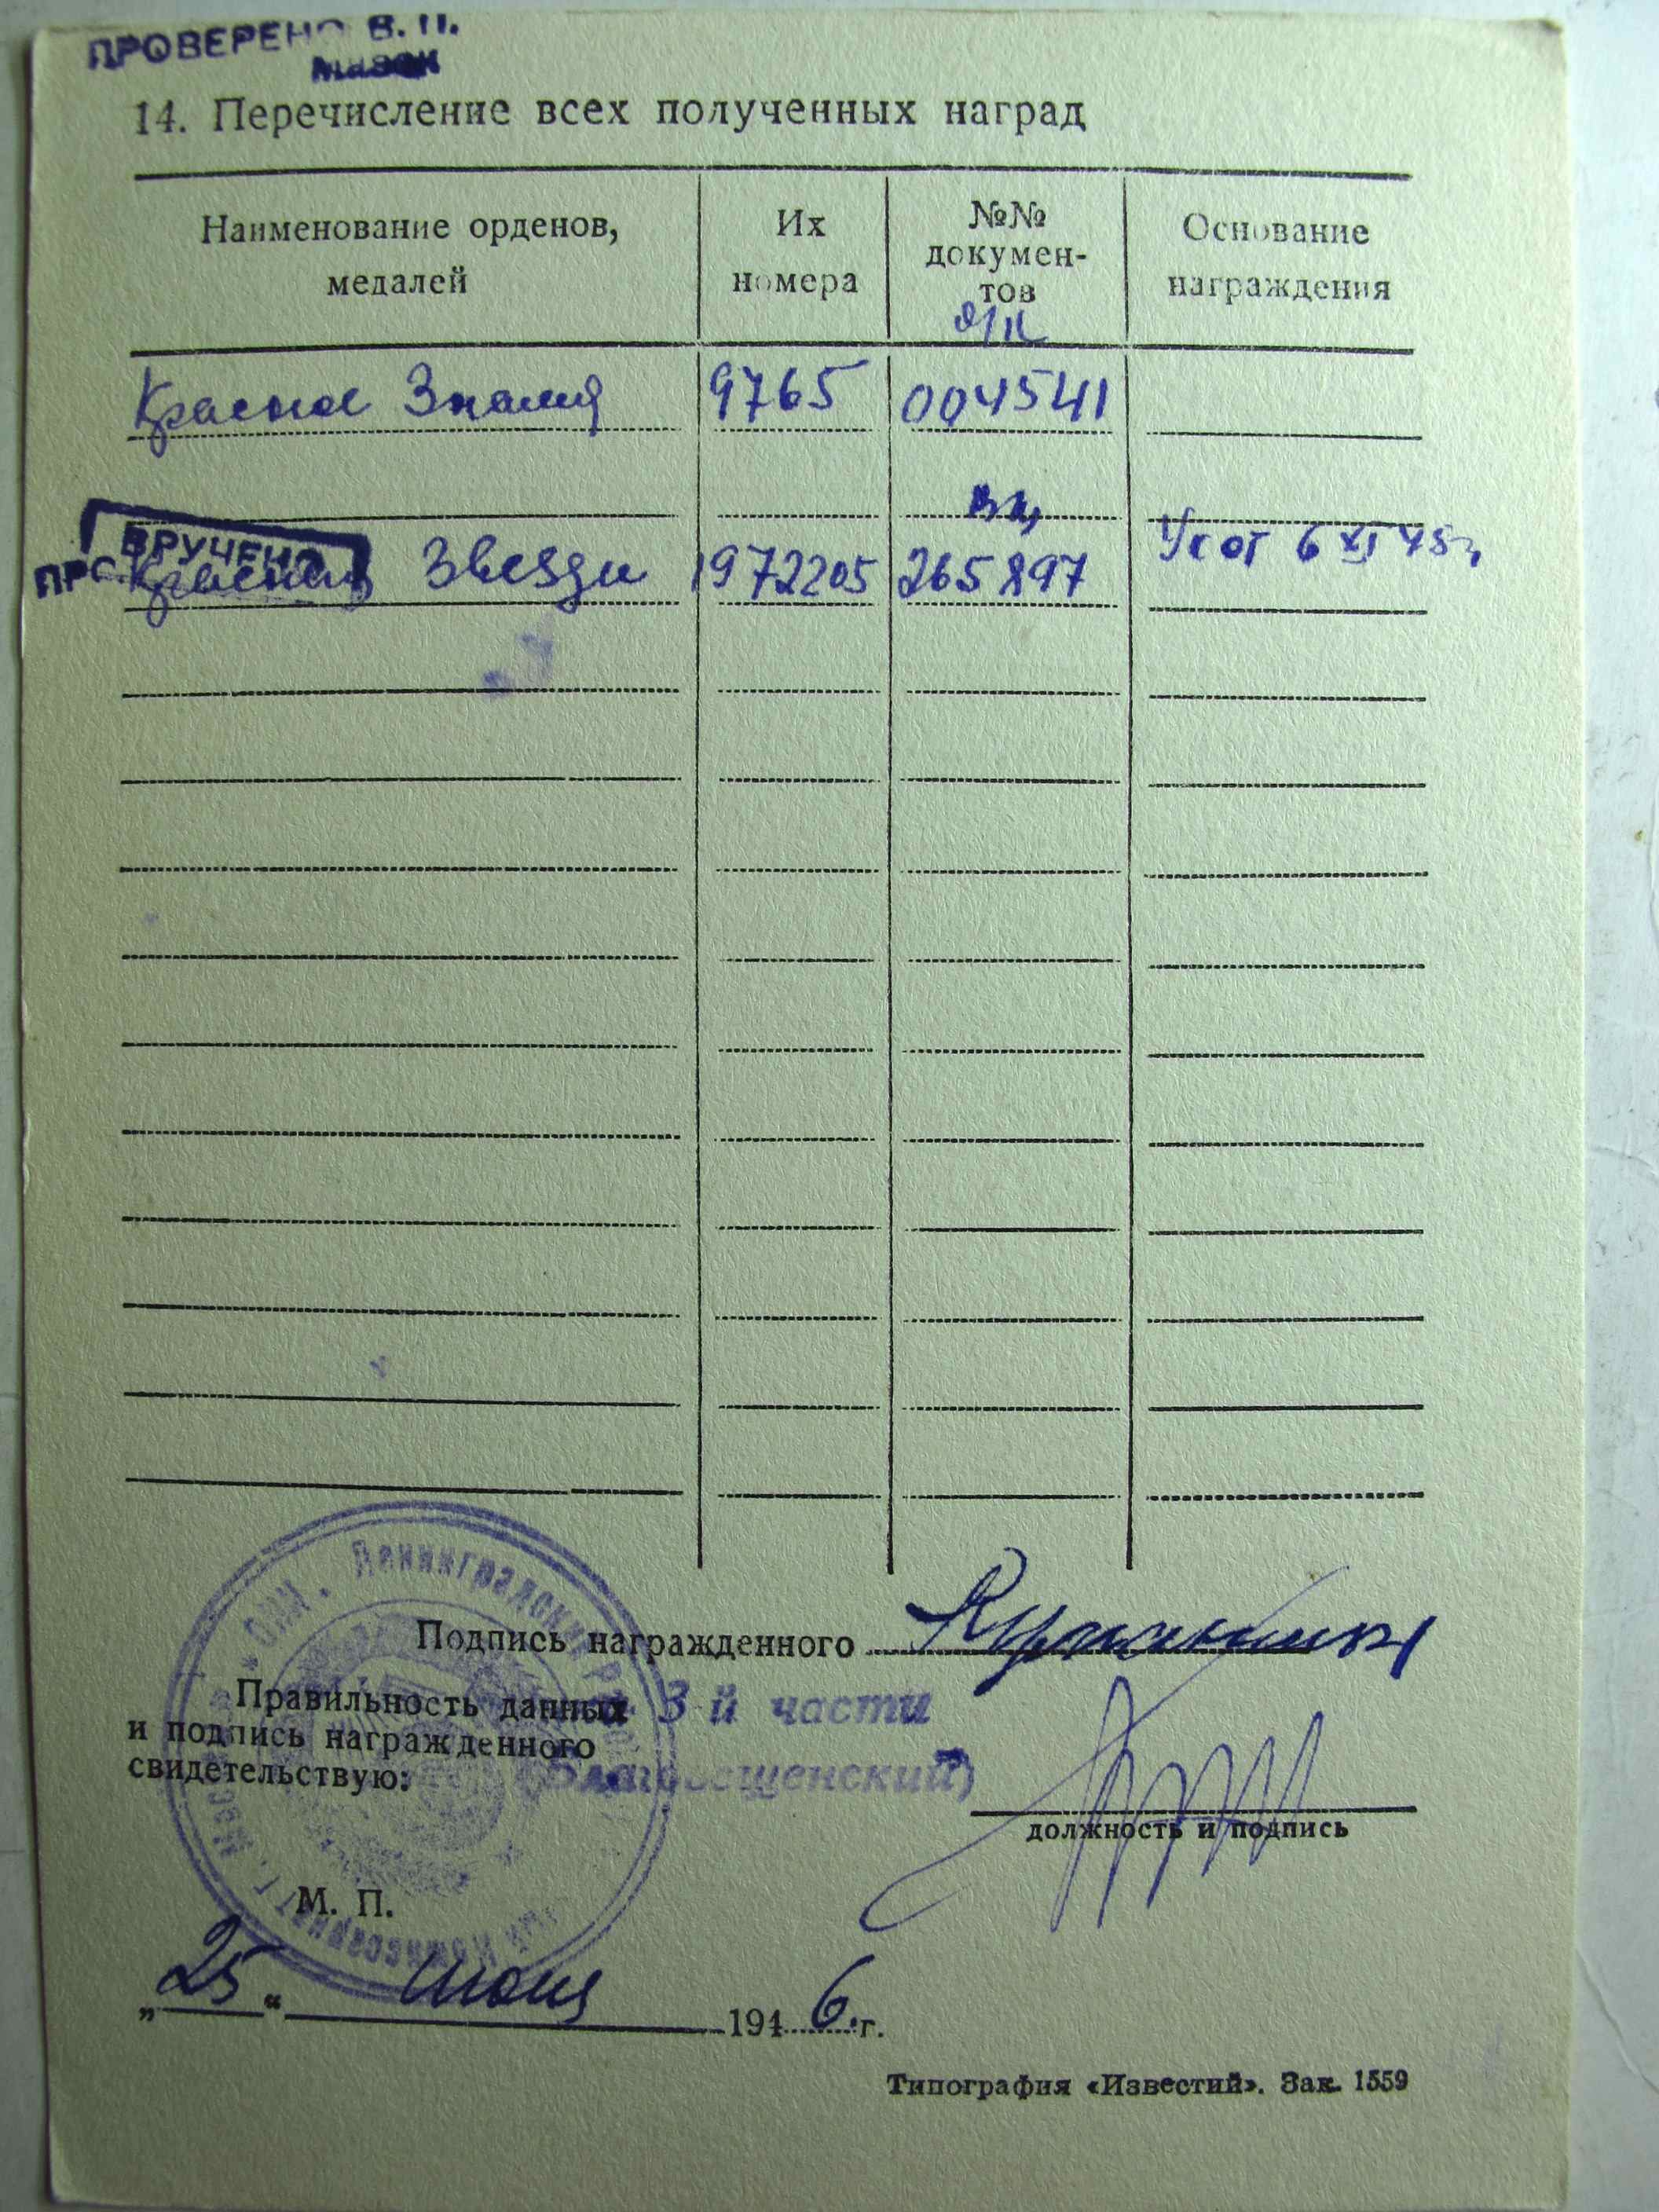 ПРОВЕРЕНО В. П.
14. Перечисление всех полученных наград
Наименование орденов, медалей
Их номера
№№ докумен-тов
Основание награждения
о/к
Красное Знамя 9765 004541
ВРУЧЕНО
Красная Звезды 1972205 265897 Ук от 6 XI 45 г,
Подпись награжденного
Правильность данных
и подпись награжденного
свидетельствую:
3-й части
(Благовещенский)
должность и подпись
М. П.
„25“ июня 1946. г.
Типография «Известий». Зак. 1559